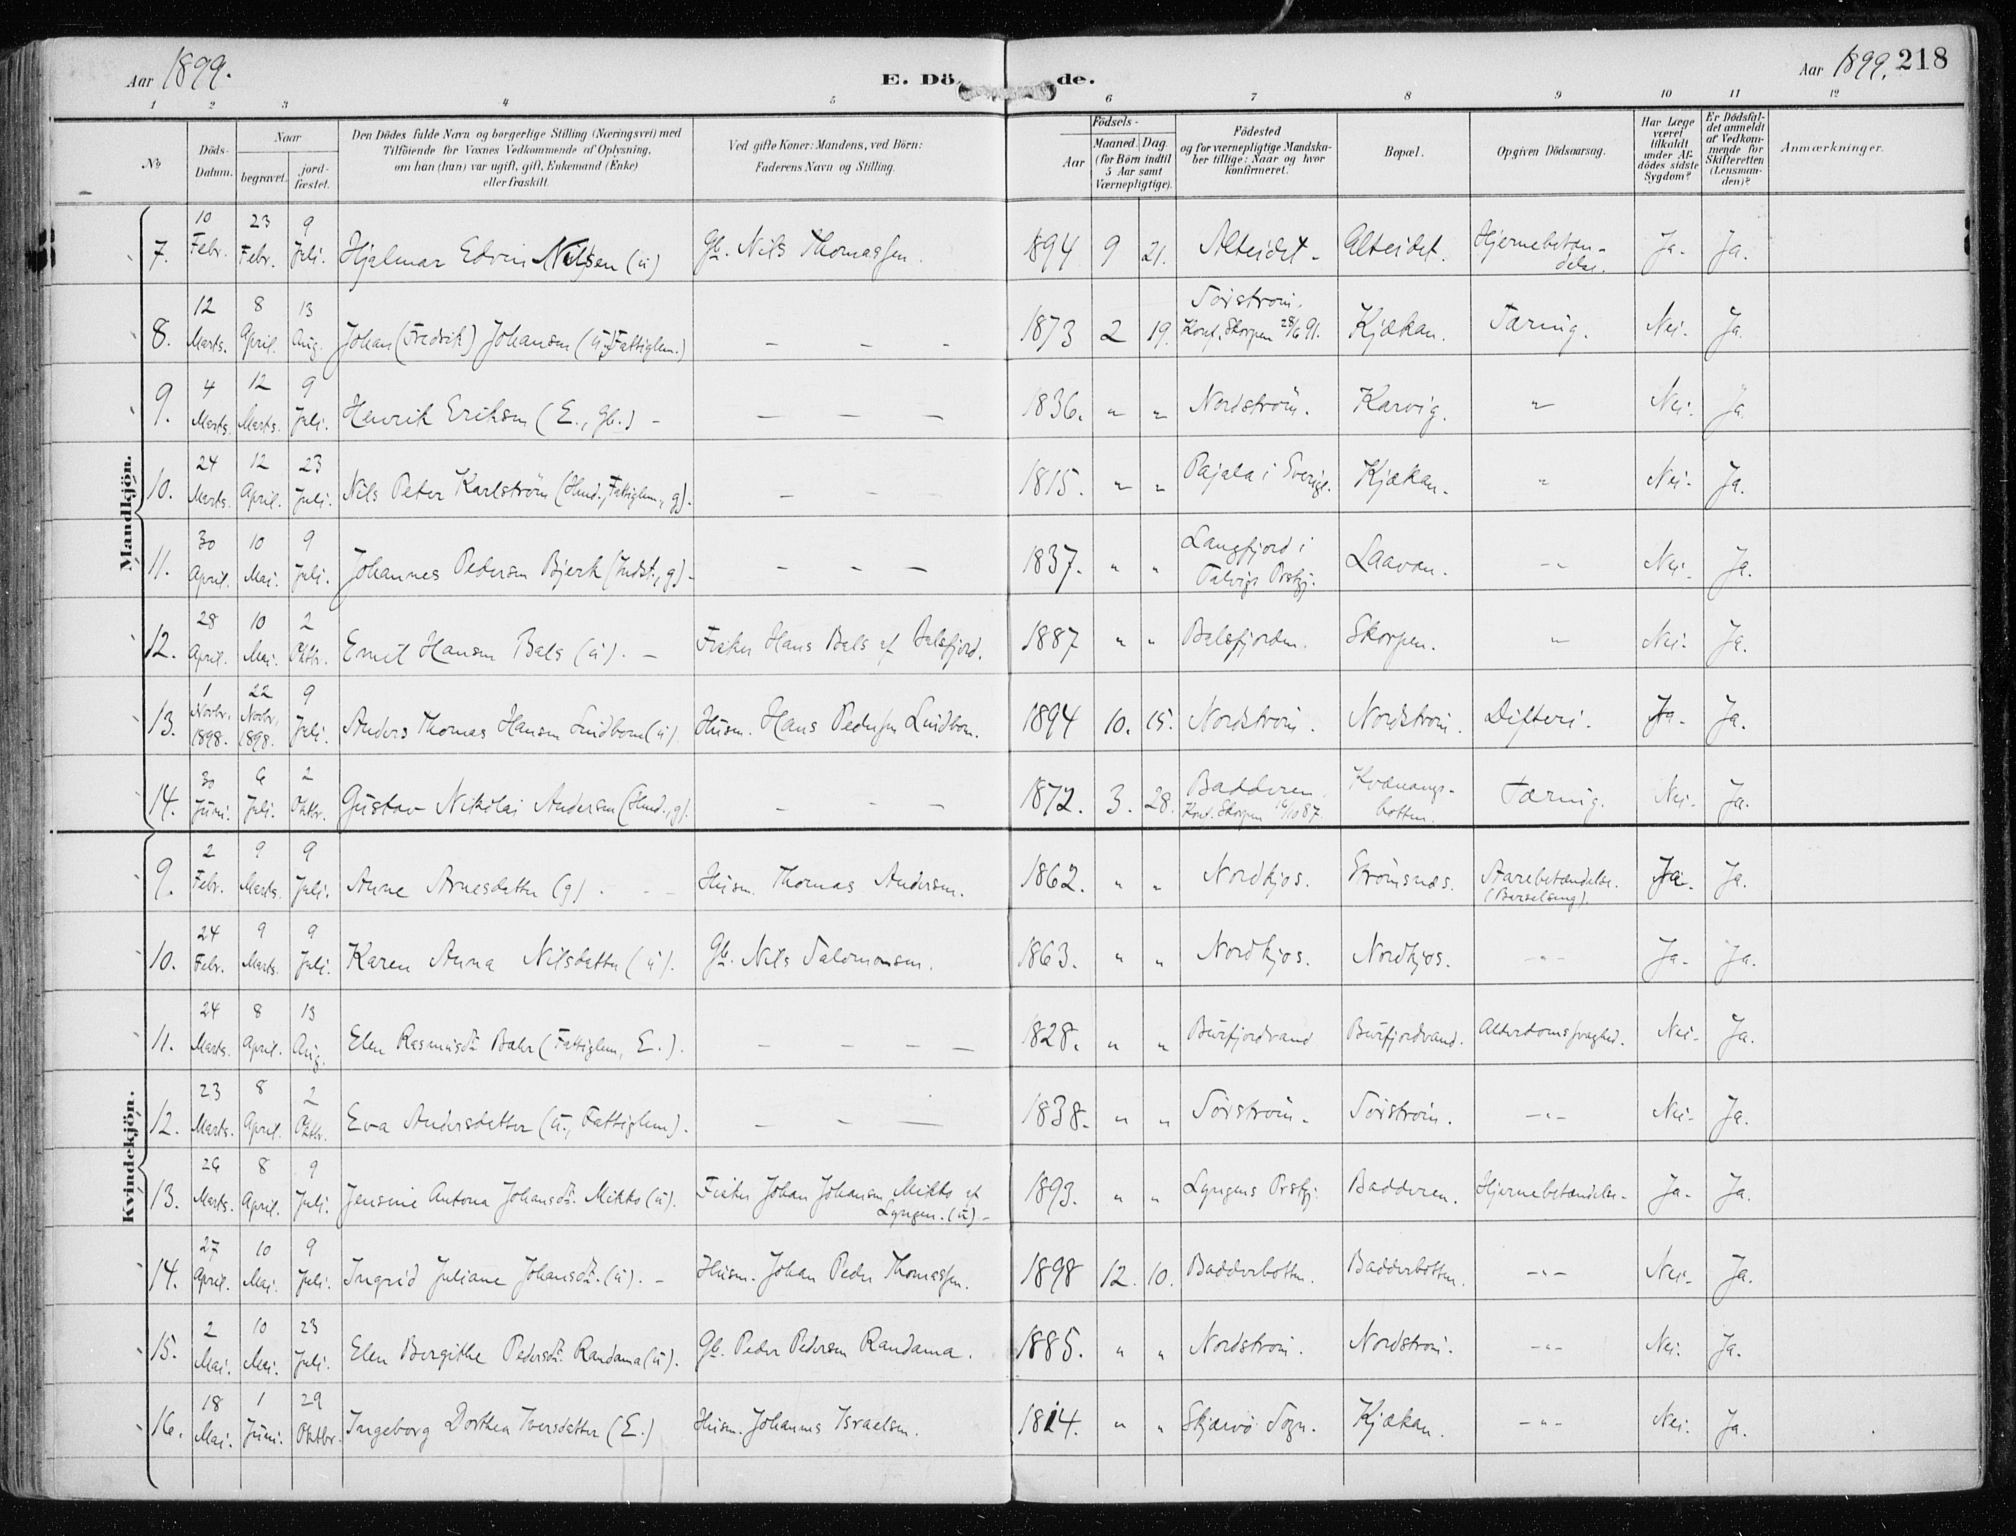 Aar 1899.
E. Dö de.
Aar 1899. 218
1 2 3 4 5 6 7 8 9 10 11 12
No
Döds-
Datum.
Naar
begravet.
jord-
fæstet.
Den Dödes fulde Navn og borgerlige Stilling (Næringsvei) med
Tilföiende for Voxnes Vedkommende af Oplysning,
om han (hun) var ugift, gift, Enkemand (Enke)
eller fraskilt.
Ved gifte Koner: Mandens, ved Börn:
Faderens Navn og Stilling.
Födsels-
Aar
Maaned. Dag.
(for Börn indtil
5 Aar samt
Værnepligtige).
Födested
og for værnepligtige Mandska-
ber tillige: Naar og hvor
konfirmeret.
Bopæl.
Opgiven Dödsaarsag.
Har Læge
været
tilkaldt
under Af-
dödes sidste
Sygdom?
Er Dödsfal-
det anmeldt
af Vedkom-
mende for
Skifteretten
(Lensman-
den)?
Anmærkninger.
Mandkjön.
7. 10 Febr. 23 Febr. 9 Juli. Hjalmar Edvin Nilsen (ú) Gb. Nils Thomassen. 1894 9 21. Alteidet - Alteidet. Hjernebetæn-
delse. Ja- Ja.
8. 12 Marts. 8 April. 13 Aug. Johan (Fredrik) Johansen (ú, Fattiglem.) - - - 1873 2 19. Sörström.
Konf. Skorpen 28/6 91. Kjækan. Tæring. Nei- Ja.
9. 4 Marts. 12 Marts. 9 Juli. Henrik Eriksen (E., Gb.) - - - - 1836. " " Nordström. Karvig. " Nei- Ja.
10. 24 Marts. 12 April. 23 Juli. Nils Peter Karlström (Husm., Fattiglem, g). - - - 1815. " " Pajala i Sverige. Kjækan. " Nei- Ja.
11. 30 April. 10 Mai. 9 Juli. Johannes Pedersen Bjerk (Indst., g) - - - - 1837. " " Langfjord i
Talvigs Prstgj. Laavan. -"- Nei- Ja.
12. 28 April. 10 Mai. 2 Oktbr. Emil Hansen Bals (ú). - Fisker Hans Bals af Balsfjord. 1887 " " Balsfjorden. Skorpen. " Nei- Ja.
13. 1 Novbr. 1898. 22 Novbr. 1898. 9 Juli. Anders Thomas Hansen Lindbom (ú) Húsm. Hans Pedersen Lindbom. 1894 10. 15. Nordström. Nordström. Difteri. Ja- Ja.
14. 30 Júni. 6 Juli. 2 Oktbr. Gústav Nikolai Andersen (Húsd., g). - - - 1872. 3. 28. Badderen.
Konf. Skorpen /10 87. Kvænangs-
botten. Tæring. Nei- Ja.
Kvindekjön.
9. 2 Febr. 9 Marts. 9 Juli. Anne Arnesdatter (g) - - - Húsm. Thomas Andersen. 1862. " " Nordkjos. Strömsnæs. Aarebetændelse.
(Barselseng). Ja- Ja.
10. 24 Febr. 9 Marts. 9 Juli. Karen Anna Nilsdatter (ú). Gb. Nils Salomonsen. 1863. " " Nordkjos. Nordkjos. -"- Ja- Ja.
11. 24 Marts. 8 April. 13 Aúg. Elen Rasmúsdtr. Bahr (Fattiglem, E.). - - - - 1828. " " Búrfjordvand Búrfjordvand. Alderdomssvaghed. Nei- Ja.
12. 23 Marts. 8 April. 2 Oktbr. Eva Andersdatter (ú., Fattiglem). - - - 1838. " " Sörström. Sörström. -"- Nei- Ja.
13. 26 Marts. 8 April. 9 Juli. Jensine Antona Johansdtr. Mikko (ú). Fisker Johan Johansen Mikko af
Lyngen. (ú) - 1893. " " Lyngens Prstgj. Badderen. Hjernebetændelse- Ja- Ja.
14. 27 April. 10 Mai. 9 Juli. Ingrid Juliane Johansdtr. (ú). - Húsm. Johan Peder Thomassen. 1898 12. 10. Badderbotten. Badderbotten. -"- Nei- Ja.
15. 2 Mai. 10 Mai. 23 Juli. Elen Bergithe Pedersdtr. Randama (ú). Gb. Peder Pedersen Randama. 1885. " " Nordström. Nordström. -"- Nei- Ja.
16. 18 Mai. 1 Júni. 29 Oktbr. Ingeborg Dorthea Iversdatter (E.) Húsm. Johannes Israelsen. 1814. " " Skjærvö Sogn. Kjækan. -"- Nei. Ja.